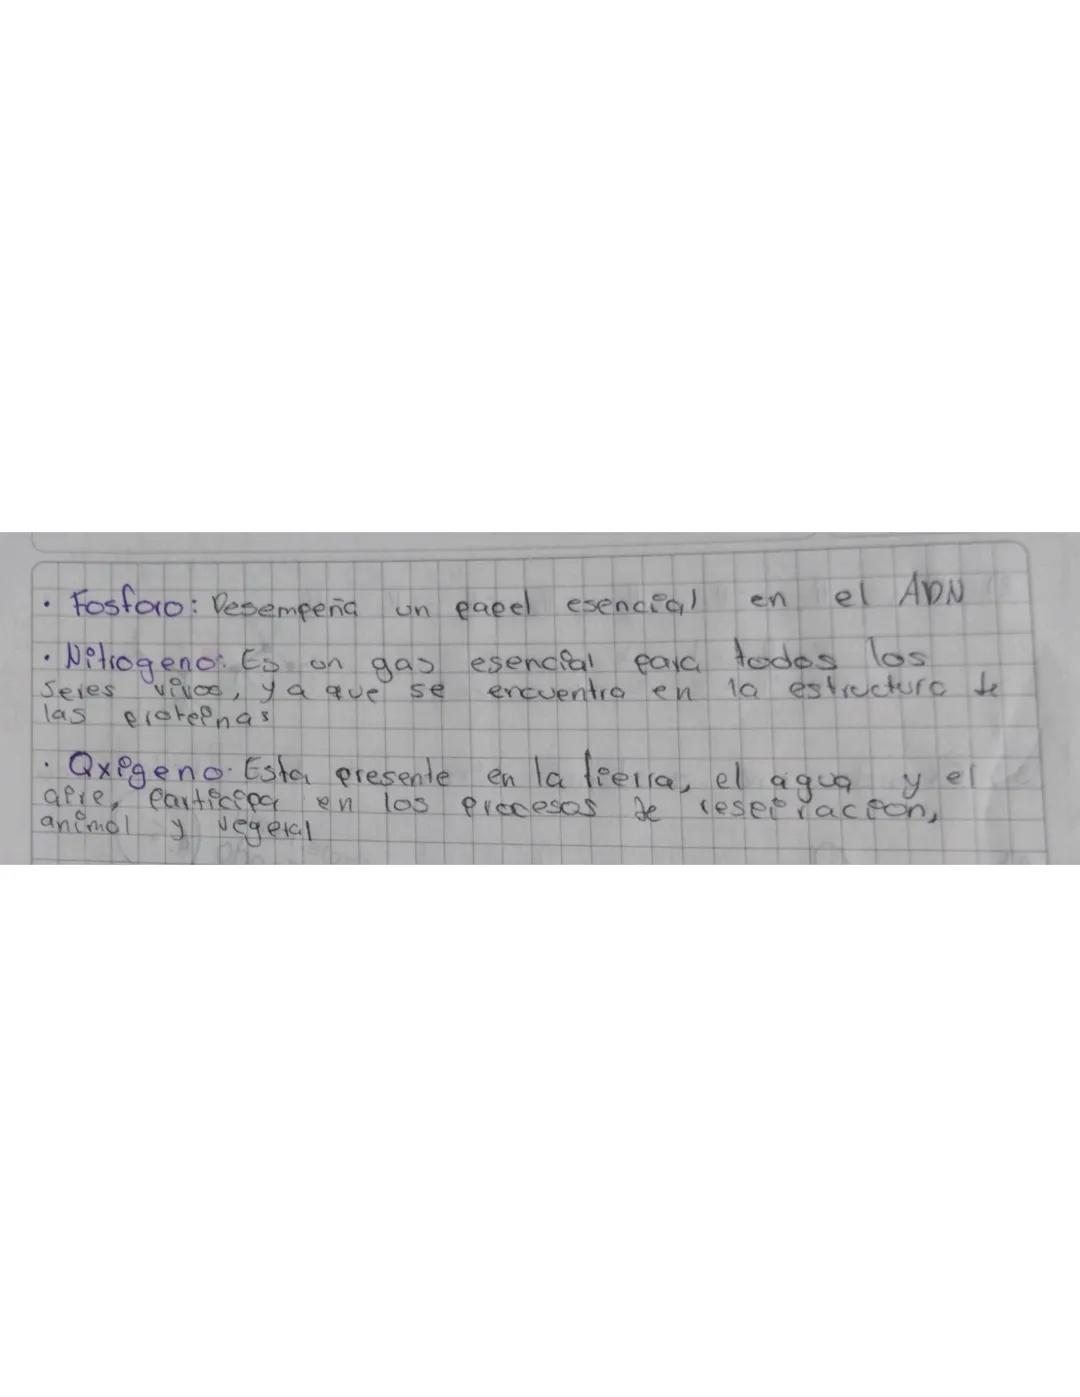 · Fosforo: Desempeña un papel esencial en el ADN
· Nitrogeno: Es un gas esencial para todos los
seres vivos, ya que se encuentra en la estructura de
las proteinas
· Oxigeno: Esta presente en la tierra, el agua y el
aire, participa en los procesos de respiracion,
animal y vegetal